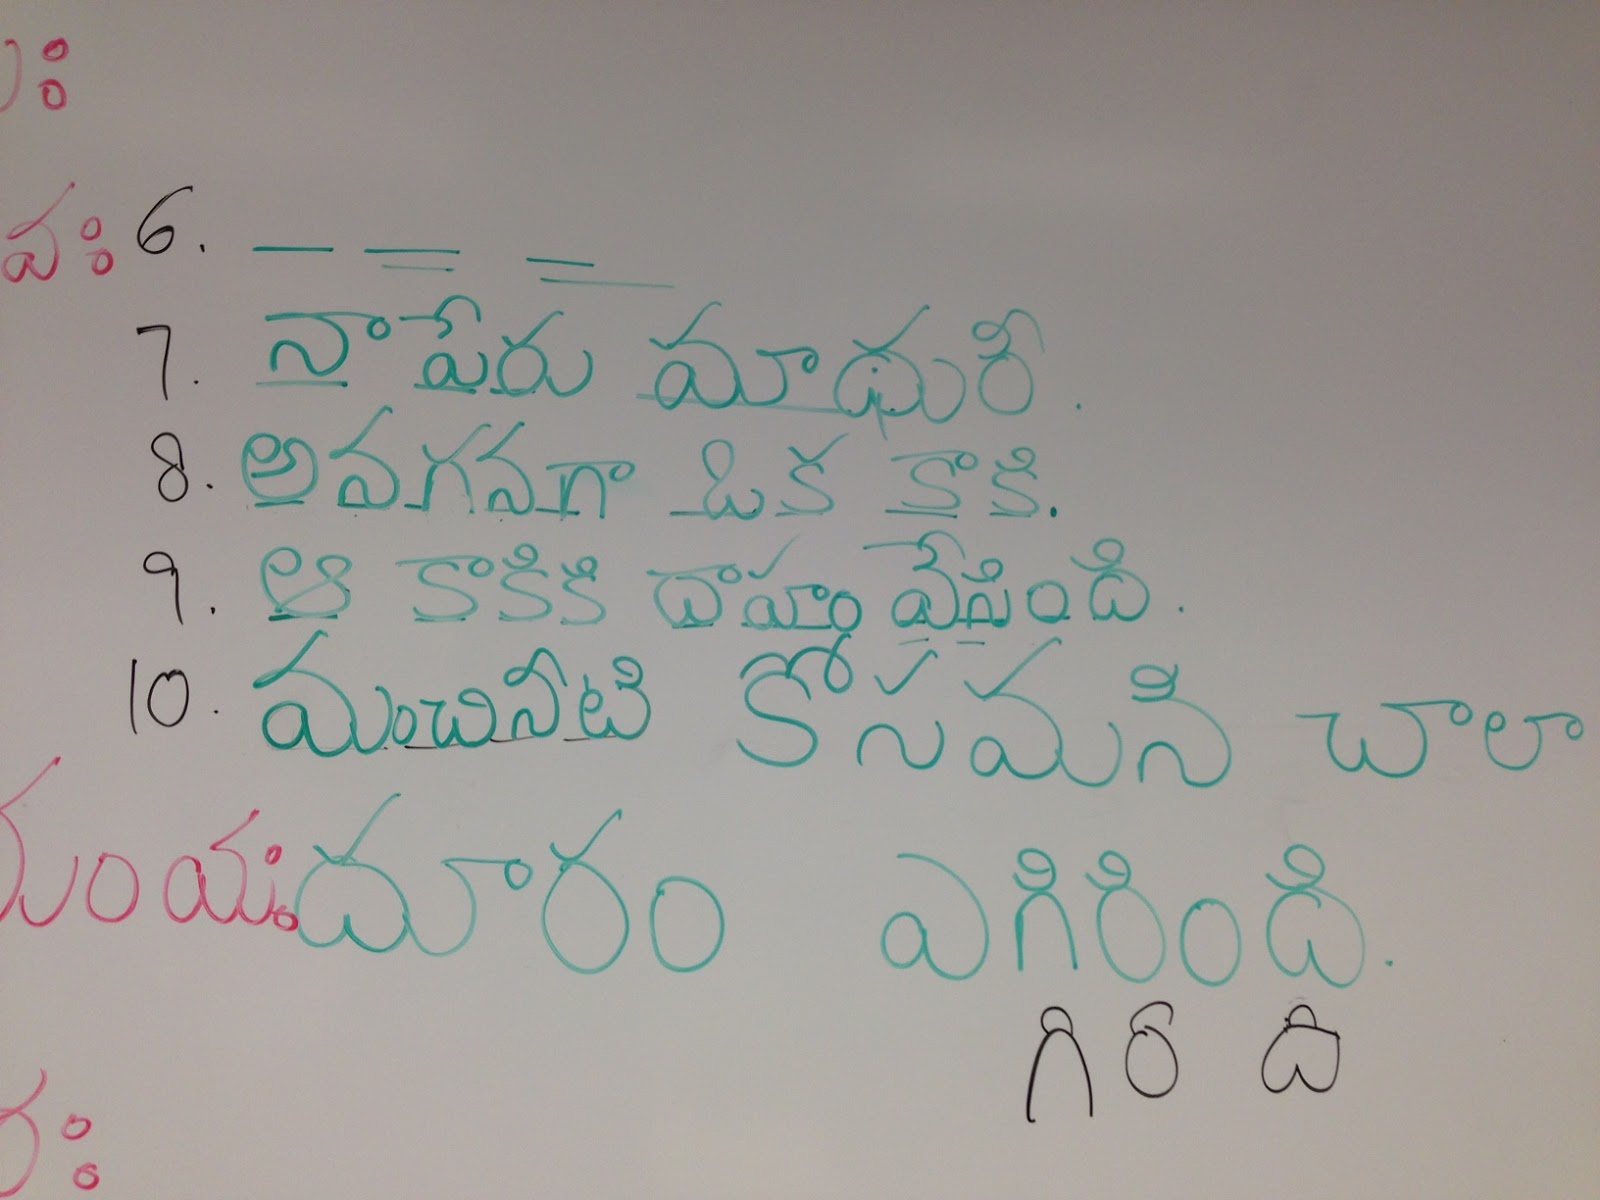 వః 6. — — —
7. నా పేరు మాధురి.
8. అనగనగా ఒక కాకి.
9. ఆ కాకికి దాహం వేసింది.
10. మంచినీటి కోసమని చాలా
యః దూరం ఎగిరింది.
గి రి ది